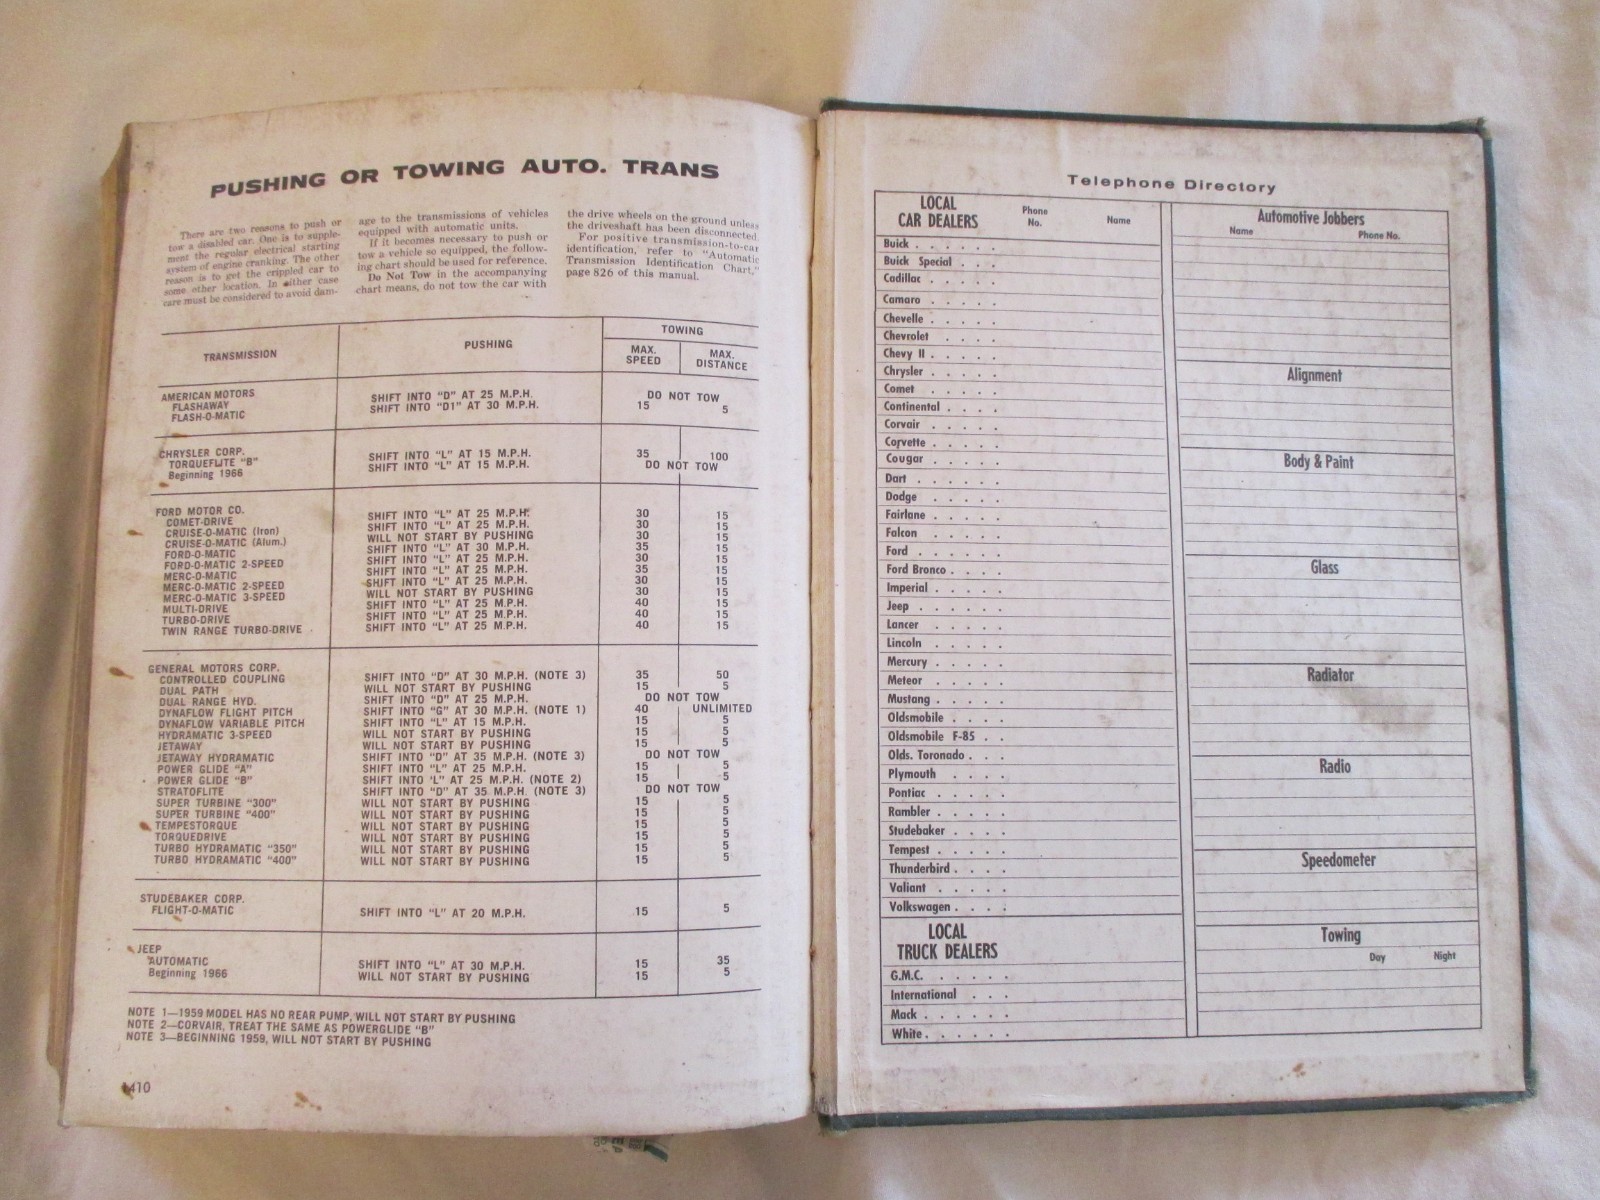 PUSHING OR TOWING AUTO. TRANS
There are two reasons to push or
tow a disabled car. One is to supple-
ment the regular electrical starting
system of engine cranking. The other
reason is to get the crippled car to
some other location. In either case
care must be considered to avoid dam-
age to the transmissions of vehicles
equipped with automatic units.
If it becomes necessary to push or
tow a vehicle so equipped, the follow-
ing chart should be used for reference.
Do Not Tow in the accompanying
chart means, do not tow the car with
the drive wheels on the ground unless
the driveshaft has been disconnected.
For positive transmission-to-car
identification, refer to "Automatic
Transmission Identification Chart,"
page 826 of this manual.
TRANSMISSION PUSHING TOWING
MAX. SPEED MAX. DISTANCE
AMERICAN MOTORS
FLASHAWAY SHIFT INTO "D" AT 25 M.P.H. DO NOT TOW
FLASH-O-MATIC SHIFT INTO "D1" AT 30 M.P.H. 15 5
CHRYSLER CORP.
TORQUEFLITE "B" SHIFT INTO "L" AT 15 M.P.H. 35 100
Beginning 1966 SHIFT INTO "L" AT 15 M.P.H. DO NOT TOW
FORD MOTOR CO.
COMET-DRIVE SHIFT INTO "L" AT 25 M.P.H. 30 15
CRUISE-O-MATIC (Iron) SHIFT INTO "L" AT 25 M.P.H. 30 15
CRUISE-O-MATIC (Alum.) WILL NOT START BY PUSHING 30 15
FORD-O-MATIC SHIFT INTO "L" AT 30 M.P.H. 35 15
FORD-O-MATIC 2-SPEED SHIFT INTO "L" AT 25 M.P.H. 30 15
MERC-O-MATIC SHIFT INTO "L" AT 25 M.P.H. 35 15
MERC-O-MATIC 2-SPEED SHIFT INTO "L" AT 25 M.P.H. 30 15
MERC-O-MATIC 3-SPEED WILL NOT START BY PUSHING 30 15
MULTI-DRIVE SHIFT INTO "L" AT 25 M.P.H. 40 15
TURBO-DRIVE SHIFT INTO "L" AT 25 M.P.H. 40 15
TWIN RANGE TURBO-DRIVE SHIFT INTO "L" AT 25 M.P.H. 40 15
GENERAL MOTORS CORP.
CONTROLLED COUPLING SHIFT INTO "D" AT 30 M.P.H. (NOTE 3) 35 50
DUAL PATH WILL NOT START BY PUSHING 15 5
DUAL RANGE HYD. SHIFT INTO "D" AT 25 M.P.H. DO NOT TOW
DYNAFLOW FLIGHT PITCH SHIFT INTO "G" AT 30 M.P.H. (NOTE 1) 40 UNLIMITED
DYNAFLOW VARIABLE PITCH SHIFT INTO "L" AT 15 M.P.H. 15 5
HYDRAMATIC 3-SPEED WILL NOT START BY PUSHING 15 5
JETAWAY WILL NOT START BY PUSHING 15 5
JETAWAY HYDRAMATIC SHIFT INTO "D" AT 35 M.P.H. (NOTE 3) DO NOT TOW
POWER GLIDE "A" SHIFT INTO "L" AT 25 M.P.H. 15 5
POWER GLIDE "B" SHIFT INTO 'L" AT 25 M.P.H. (NOTE 2) 15 5
STRATOFLITE SHIFT INTO "D" AT 35 M.P.H. (NOTE 3) DO NOT TOW
SUPER TURBINE "300" WILL NOT START BY PUSHING 15 5
SUPER TURBINE "400" WILL NOT START BY PUSHING 15 5
TEMPESTORQUE WILL NOT START BY PUSHING 15 5
TORQUEDRIVE WILL NOT START BY PUSHING 15 5
TURBO HYDRAMATIC "350" WILL NOT START BY PUSHING 15 5
TURBO HYDRAMATIC "400" WILL NOT START BY PUSHING 15 5
STUDEBAKER CORP.
FLIGHT-O-MATIC SHIFT INTO "L" AT 20 M.P.H. 15 5
JEEP
AUTOMATIC SHIFT INTO "L" AT 30 M.P.H. 15 35
Beginning 1966 WILL NOT START BY PUSHING 15 5
NOTE 1—1959 MODEL HAS NO REAR PUMP, WILL NOT START BY PUSHING
NOTE 2—CORVAIR, TREAT THE SAME AS POWERGLIDE "B"
NOTE 3—BEGINNING 1959, WILL NOT START BY PUSHING
410
Telephone Directory
LOCAL
CAR DEALERS Phone No. Name
Buick . . . . . .
Buick Special . . .
Cadillac . . . . .
Camaro . . . . .
Chevelle . . . . .
Chevrolet . . . .
Chevy II . . . . .
Chrysler . . . . .
Comet . . . . .
Continental . . . .
Corvair . . . . .
Corvette . . . . .
Cougar . . . . .
Dart . . . . . .
Dodge . . . . .
Fairlane . . . . .
Falcon . . . . .
Ford . . . . . .
Ford Bronco . . . .
Imperial . . . . .
Jeep . . . . . .
Lancer . . . . .
Lincoln . . . . .
Mercury . . . . .
Meteor . . . . .
Mustang . . . . .
Oldsmobile . . . .
Oldsmobile F-85 . .
Olds. Toronado . . .
Plymouth . . . .
Pontiac . . . . .
Rambler . . . . .
Studebaker . . . .
Tempest . . . . .
Thunderbird . . . .
Valiant . . . . .
Volkswagen . . . .
LOCAL
TRUCK DEALERS
G.M.C. . . . . .
International . . .
Mack . . . . . .
White . . . . . .
Automotive Jobbers
Name Phone No.
Alignment
Body & Paint
Glass
Radiator
Radio
Speedometer
Towing
Day Night